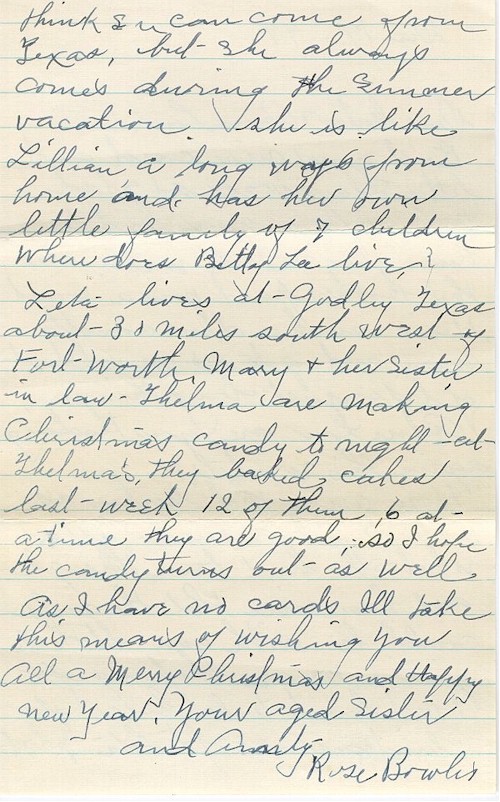 think I can come from
Texas, but she always
comes during the summer
vacation she is like
Lillian a long ways from
home and has her own
little family of 7 children
Where does Betty Lee live,?
Leta lives at Godley Texas
about 30 miles south west of
Fort Worth, Mary + her Sister
in law Thelma are making
Christmas candy to night at
Thelma's, they baked cakes
last week 12 of them, 6 at
a time they are good, so I hope
the candy turns out as well
As I have no cards Ill take
this means of wishing you
all a Merry Christmas and Happy
new Year, Your aged Sister
and Aunty
Rose Bowlis